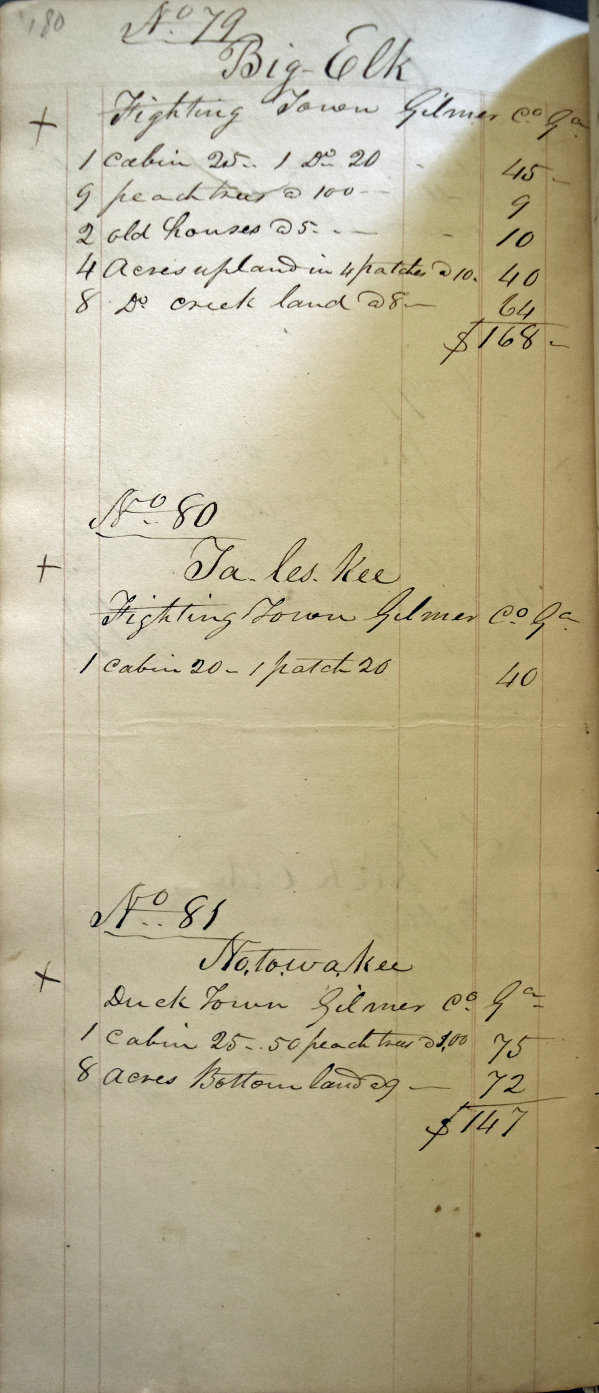 180
No. 79
Big-Elk
+ Fighting Town Gilmer Co Ga
1 cabin 25.. 1 Do 20 - 45-
9 peach trees @ 100 -- - 9
2 old houses @ 5. - - - 10
4 Acres upland in 4 patches @ 10. 40
8 Do creek land @ 8 - 64
$168-
No. 80
+ Ta-les-kee
Fighting Town Gilmer Co Ga
1 cabin 20 - 1 patch 20 40
No. 81
No,to,wa,kee
+ Duck Town Gilmer Co Ga
1 Cabin 25-. 50 peach trees @ 1,00 75
8 acres Bottom land @ 9 - 72
$147